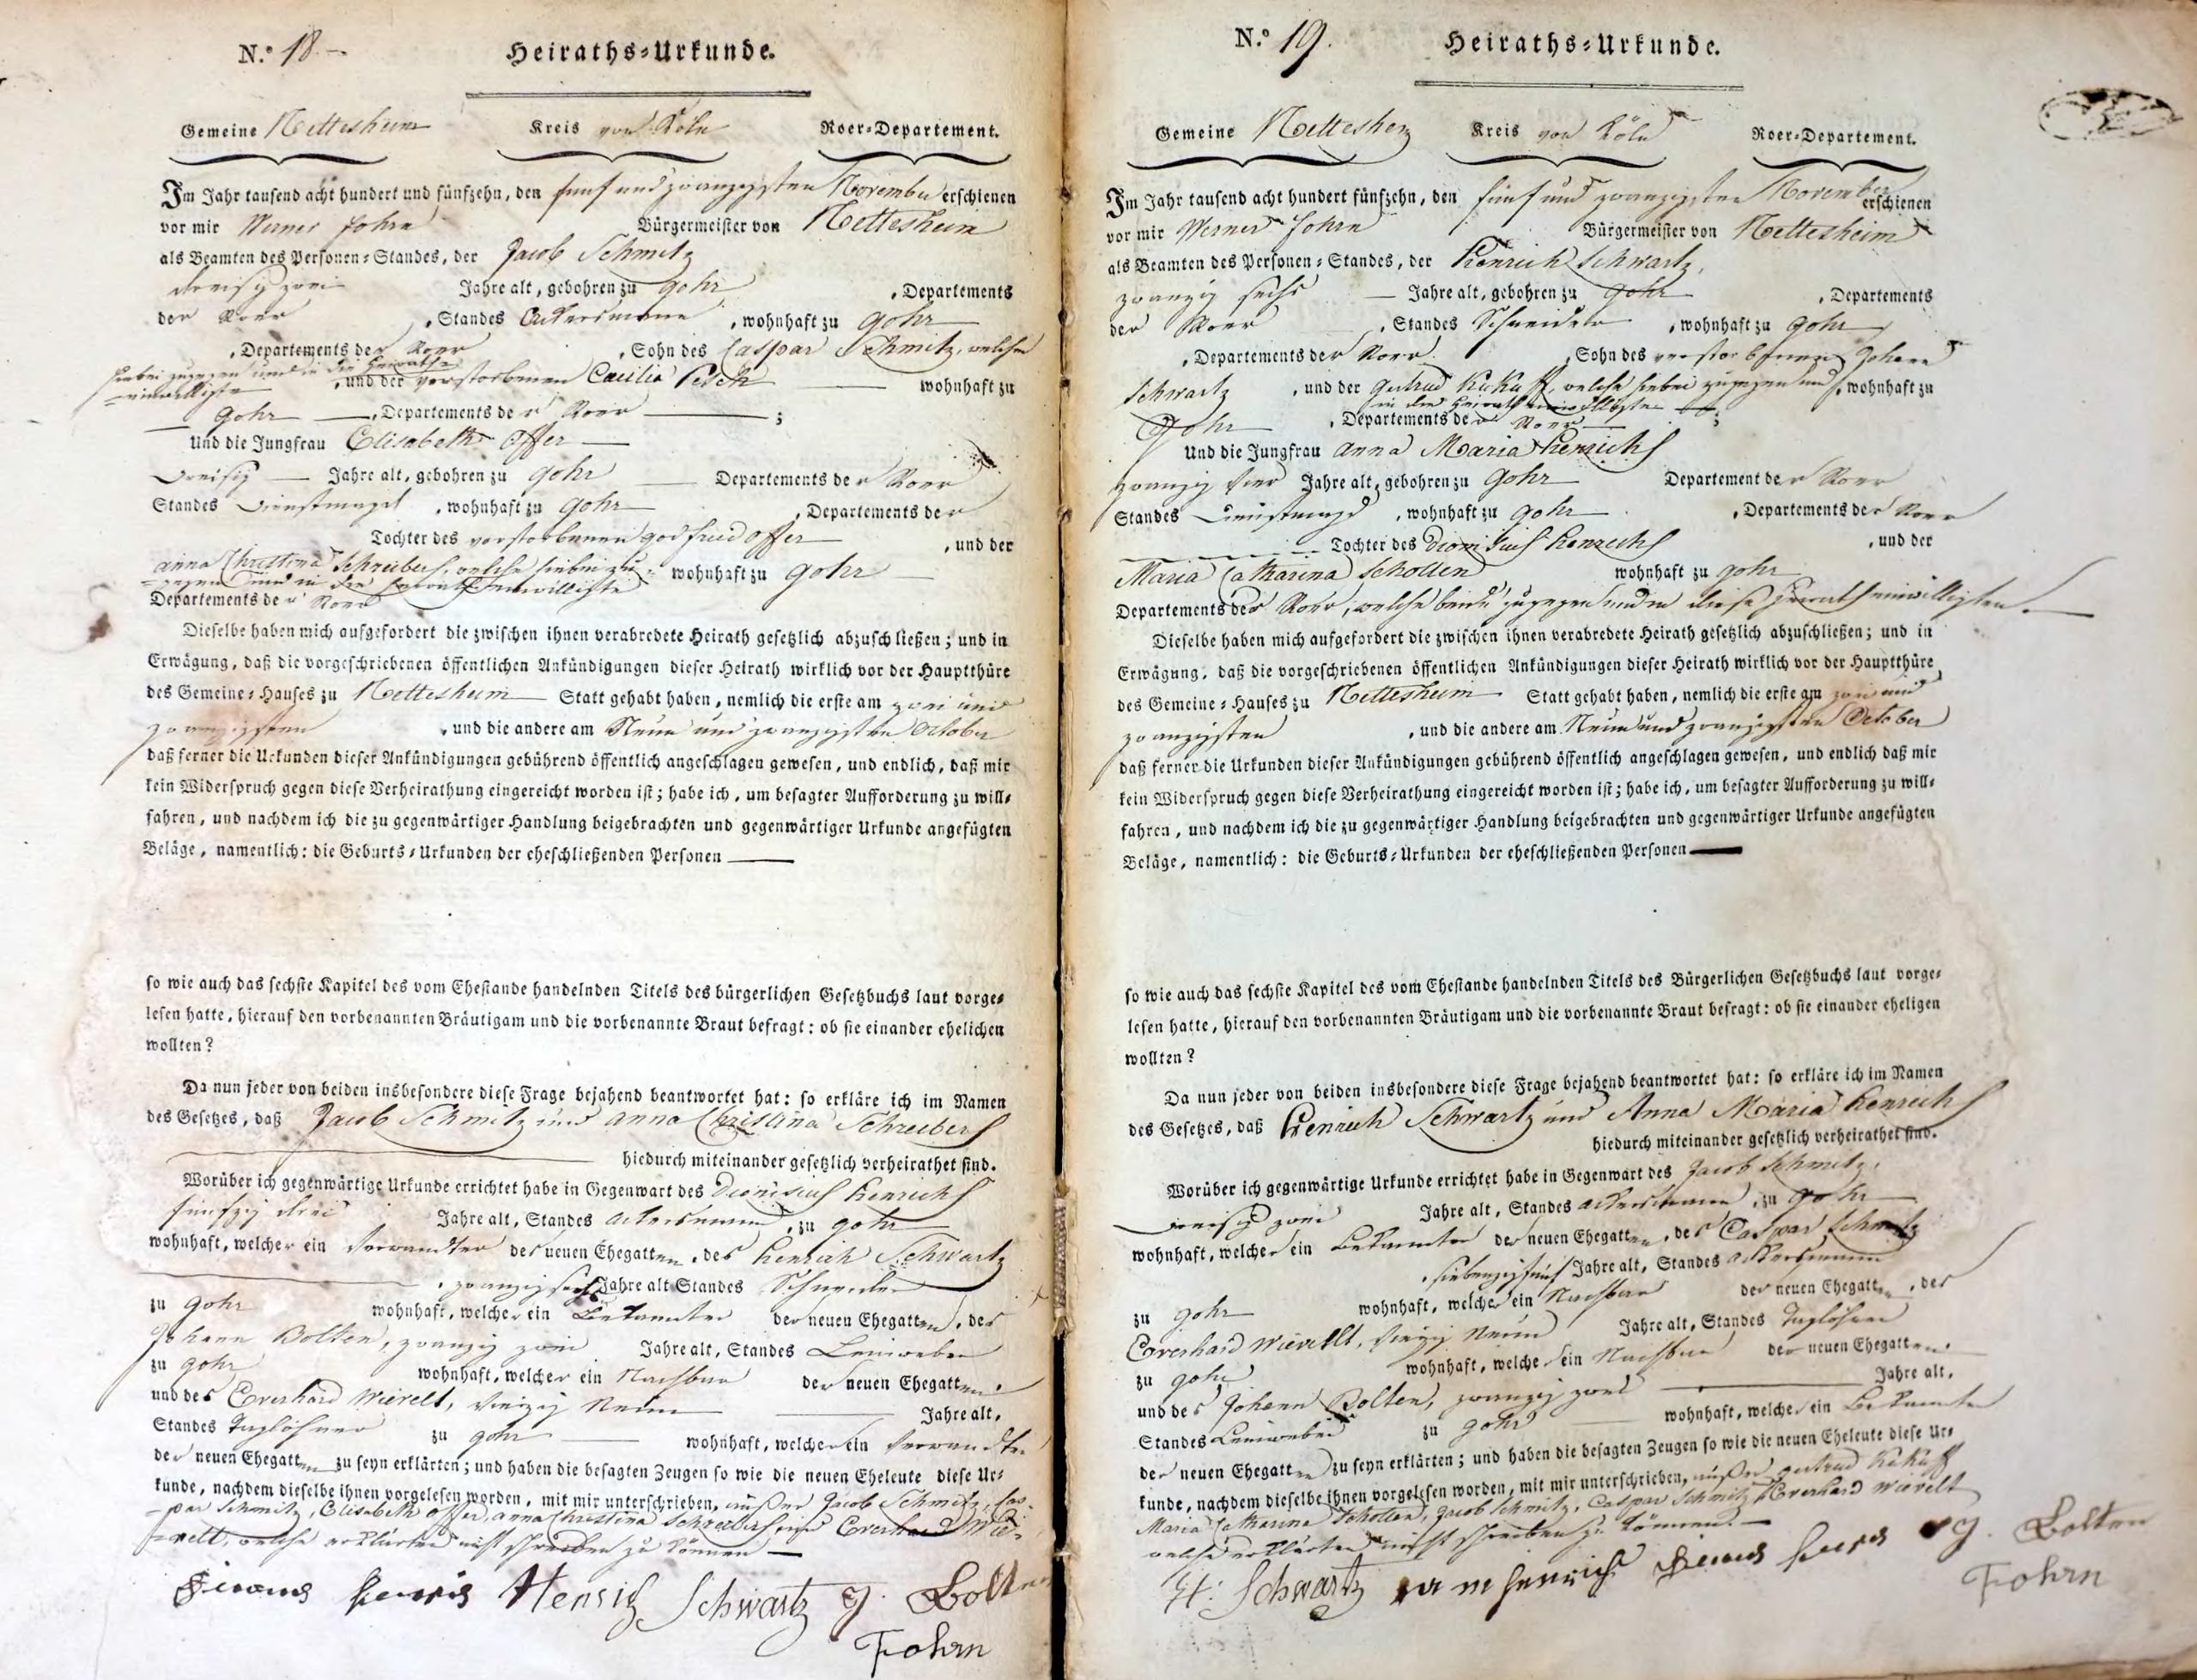 N.º 18.
Heiraths-Urkunde.
Gemeine Nettesheim Kreis von Köln Roer-Departement.
Im Jahr tausend acht hundert und fünfzehn, den fünf und zwanzigsten November erschienen
vor mir Werner Fohrn Bürgermeister von Nettesheim
als Beamten des Personen-Standes, der Jacob Schmitz
dreisig zwei Jahre alt, gebohren zu Gohr, Departements
der Roer, Standes Ackersmann, wohnhaft zu Gohr
, Departements der Roer, Sohn des Caspar Schmitz, welcher
hiebei zugegen und in die Heirath
einwilligte, und der verstorbenen Cacilia Pesch wohnhaft zu
Gohr, Departements der Roer ;
Und die Jungfrau Elisabeth Offer
Dreisig Jahre alt, gebohren zu Gohr Departements der Roer
Standes Dienstmagd, wohnhaft zu Gohr, Departements der
Tochter des verstorbenen Godfried Offer, und der
anna Christina Schreibers, welche hiebei zu- wohnhaft zu Gohr
gegen und in die Heirath einwilligte
Departements der Roer
Dieselbe haben mich aufgefordert die zwischen ihnen verabredete Heirath gesetzlich abzuschließen; und in
Erwägung, daß die vorgeschriebenen öffentlichen Ankündigungen dieser Heirath wirklich vor der Hauptthüre
des Gemeine-Hauses zu Nettesheim Statt gehabt haben, nemlich die erste am zwei und
zwanzigsten, und die andere am Neun und zwanzigsten October
daß ferner die Urkunden dieser Ankündigungen gebührend öffentlich angeschlagen gewesen, und endlich, daß mir
kein Widerspruch gegen diese Verheirathung eingereicht worden ist; habe ich, um besagter Aufforderung zu will-
fahren, und nachdem ich die zu gegenwärtiger Handlung beigebrachten und gegenwärtiger Urkunde angefügten
Beläge, namentlich: die Geburts-Urkunden der eheschließenden Personen
so wie auch das sechste Kapitel des vom Ehestande handelnden Titels des bürgerlichen Gesetzbuchs laut vorge-
lesen hatte, hierauf den vorbenannten Bräutigam und die vorbenannte Braut befragt: ob sie einander ehelichen
wollten?
Da nun jeder von beiden insbesondere diese Frage bejahend beantwortet hat: so erkläre ich im Namen
des Gesetzes, daß Jacob Schmitz und anna Christina Schreibers
hiedurch miteinander gesetzlich verheirathet sind.
Worüber ich gegenwärtige Urkunde errichtet habe in Gegenwart des Dionisius Henrichs
fünfzig drei Jahre alt, Standes Ackersmann, zu Gohr
wohnhaft, welcher ein Verwandter der neuen Ehegatten, des Henrich Schwartz
, zwanzig sechs Jahre alt Standes Schneider
zu Gohr wohnhaft, welcher ein Bekannter der neuen Ehegatten, des
Johann Bolten, zwanzig zwei Jahre alt, Standes Leinweber
zu Gohr wohnhaft, welcher ein Nachbar der neuen Ehegatten
und des Everhard Wierelt, vierzig Neun Jahre alt,
Standes Taglöhner zu Gohr wohnhaft, welcher ein Verwandter
der neuen Ehegatten zu seyn erklärten; und haben die besagten Zeugen so wie die neuen Eheleute diese Ur-
kunde, nachdem dieselbe ihnen vorgelesen worden, mit mir unterschrieben, außer Jacob Schmitz, Cas-
par Schmitz, Elisabeth Offer, anna Christina Schreibers und Everhard Wie-
relt, welche erklärten nicht schreiben zu können
Henrich Schwartz J. Bolten
Fohrn
N.º 19.
Heiraths-Urkunde.
Gemeine Nettesheim Kreis von Köln Roer-Departement.
Im Jahr tausend acht hundert fünfzehn, den fünf und zwanzigsten November erschienen
vor mir Werner Fohrn Bürgermeister von Nettesheim
als Beamten des Personen-Standes, der Henrich Schwartz,
zwanzig sechs Jahre alt, gebohren zu Gohr, Departements
der Roer, Standes Schneider, wohnhaft zu Gohr
, Departements der Roer, Sohn des verstorbenen Johann
Schwartz, und der Gertrud Kükaff, welche hiebei zugegen und, wohnhaft zu
in die Heirath einwilligte
Gohr, Departements der Roer ;
Und die Jungfrau anna Maria Henrichs
zwanzig vier Jahre alt, gebohren zu Gohr Departement der Roer
Standes Dienstmagd, wohnhaft zu Gohr, Departements der Roer
Tochter des Dionisius Henrichs, und der
Maria Catharina Scholten wohnhaft zu Gohr
Departements der Roer, welche beide zugegen und in diese Heirath einwilligten.
Dieselbe haben mich aufgefordert die zwischen ihnen verabredete Heirath gesetzlich abzuschließen; und in
Erwägung, daß die vorgeschriebenen öffentlichen Ankündigungen dieser Heirath wirklich vor der Hauptthüre
des Gemeine-Hauses zu Nettesheim Statt gehabt haben, nemlich die erste am zwei und
zwanzigsten, und die andere am Neun und zwanzigsten October
daß ferner die Urkunden dieser Ankündigungen gebührend öffentlich angeschlagen gewesen, und endlich daß mir
kein Widerspruch gegen diese Verheirathung eingereicht worden ist; habe ich, um besagter Aufforderung zu will-
fahren, und nachdem ich die zu gegenwärtiger Handlung beigebrachten und gegenwärtiger Urkunde angefügten
Beläge, namentlich: die Geburts-Urkunden der eheschließenden Personen
so wie auch das sechste Kapitel des vom Ehestande handelnden Titels des Bürgerlichen Gesetzbuchs laut vorge-
lesen hatte, hierauf den vorbenannten Bräutigam und die vorbenannte Braut befragt: ob sie einander eheligen
wollten?
Da nun jeder von beiden insbesondere diese Frage bejahend beantwortet hat: so erkläre ich im Namen
des Gesetzes, daß Henrich Schwartz und Anna Maria Henrichs
hiedurch miteinander gesetzlich verheirathet sind.
Worüber ich gegenwärtige Urkunde errichtet habe in Gegenwart des Jacob Schmitz,
dreisig zwei Jahre alt, Standes Ackersmann, zu Gohr
wohnhaft, welcher ein Bekannter der neuen Ehegatten, des Caspar Schmitz
, siebenzig fünf Jahre alt, Standes Ackersmann
zu Gohr wohnhaft, welcher ein Nachbar der neuen Ehegatten, des
Everhard Wierelt, vierzig Neun Jahre alt, Standes Taglöhner
zu Gohr wohnhaft, welcher ein Nachbar der neuen Ehegatten
und des Johann Bolten, zwanzig zwei Jahre alt,
Standes Leinweber zu Gohr wohnhaft, welcher ein Bekannter
der neuen Ehegatten zu seyn erklärten; und haben die besagten Zeugen so wie die neuen Eheleute diese Ur-
kunde, nachdem dieselbe ihnen vorgelesen worden, mit mir unterschrieben, außer Gertrud Kükaff
Maria Catharina Scholten, Jacob Schmitz, Caspar Schmitz Everhard Wierelt
welche erklärten nicht schreiben zu können.
H: Schwartz J. Bolten
Fohrn